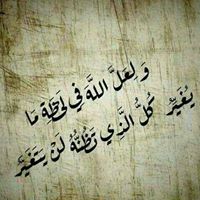 وَلعَلَّ اللَّهَ في لَحْظَةٍ مَا
يُغَيِّرُ كُلُّ الَّذِي تَظُنُّهُ لَنْ يَتَغَيَّرَ